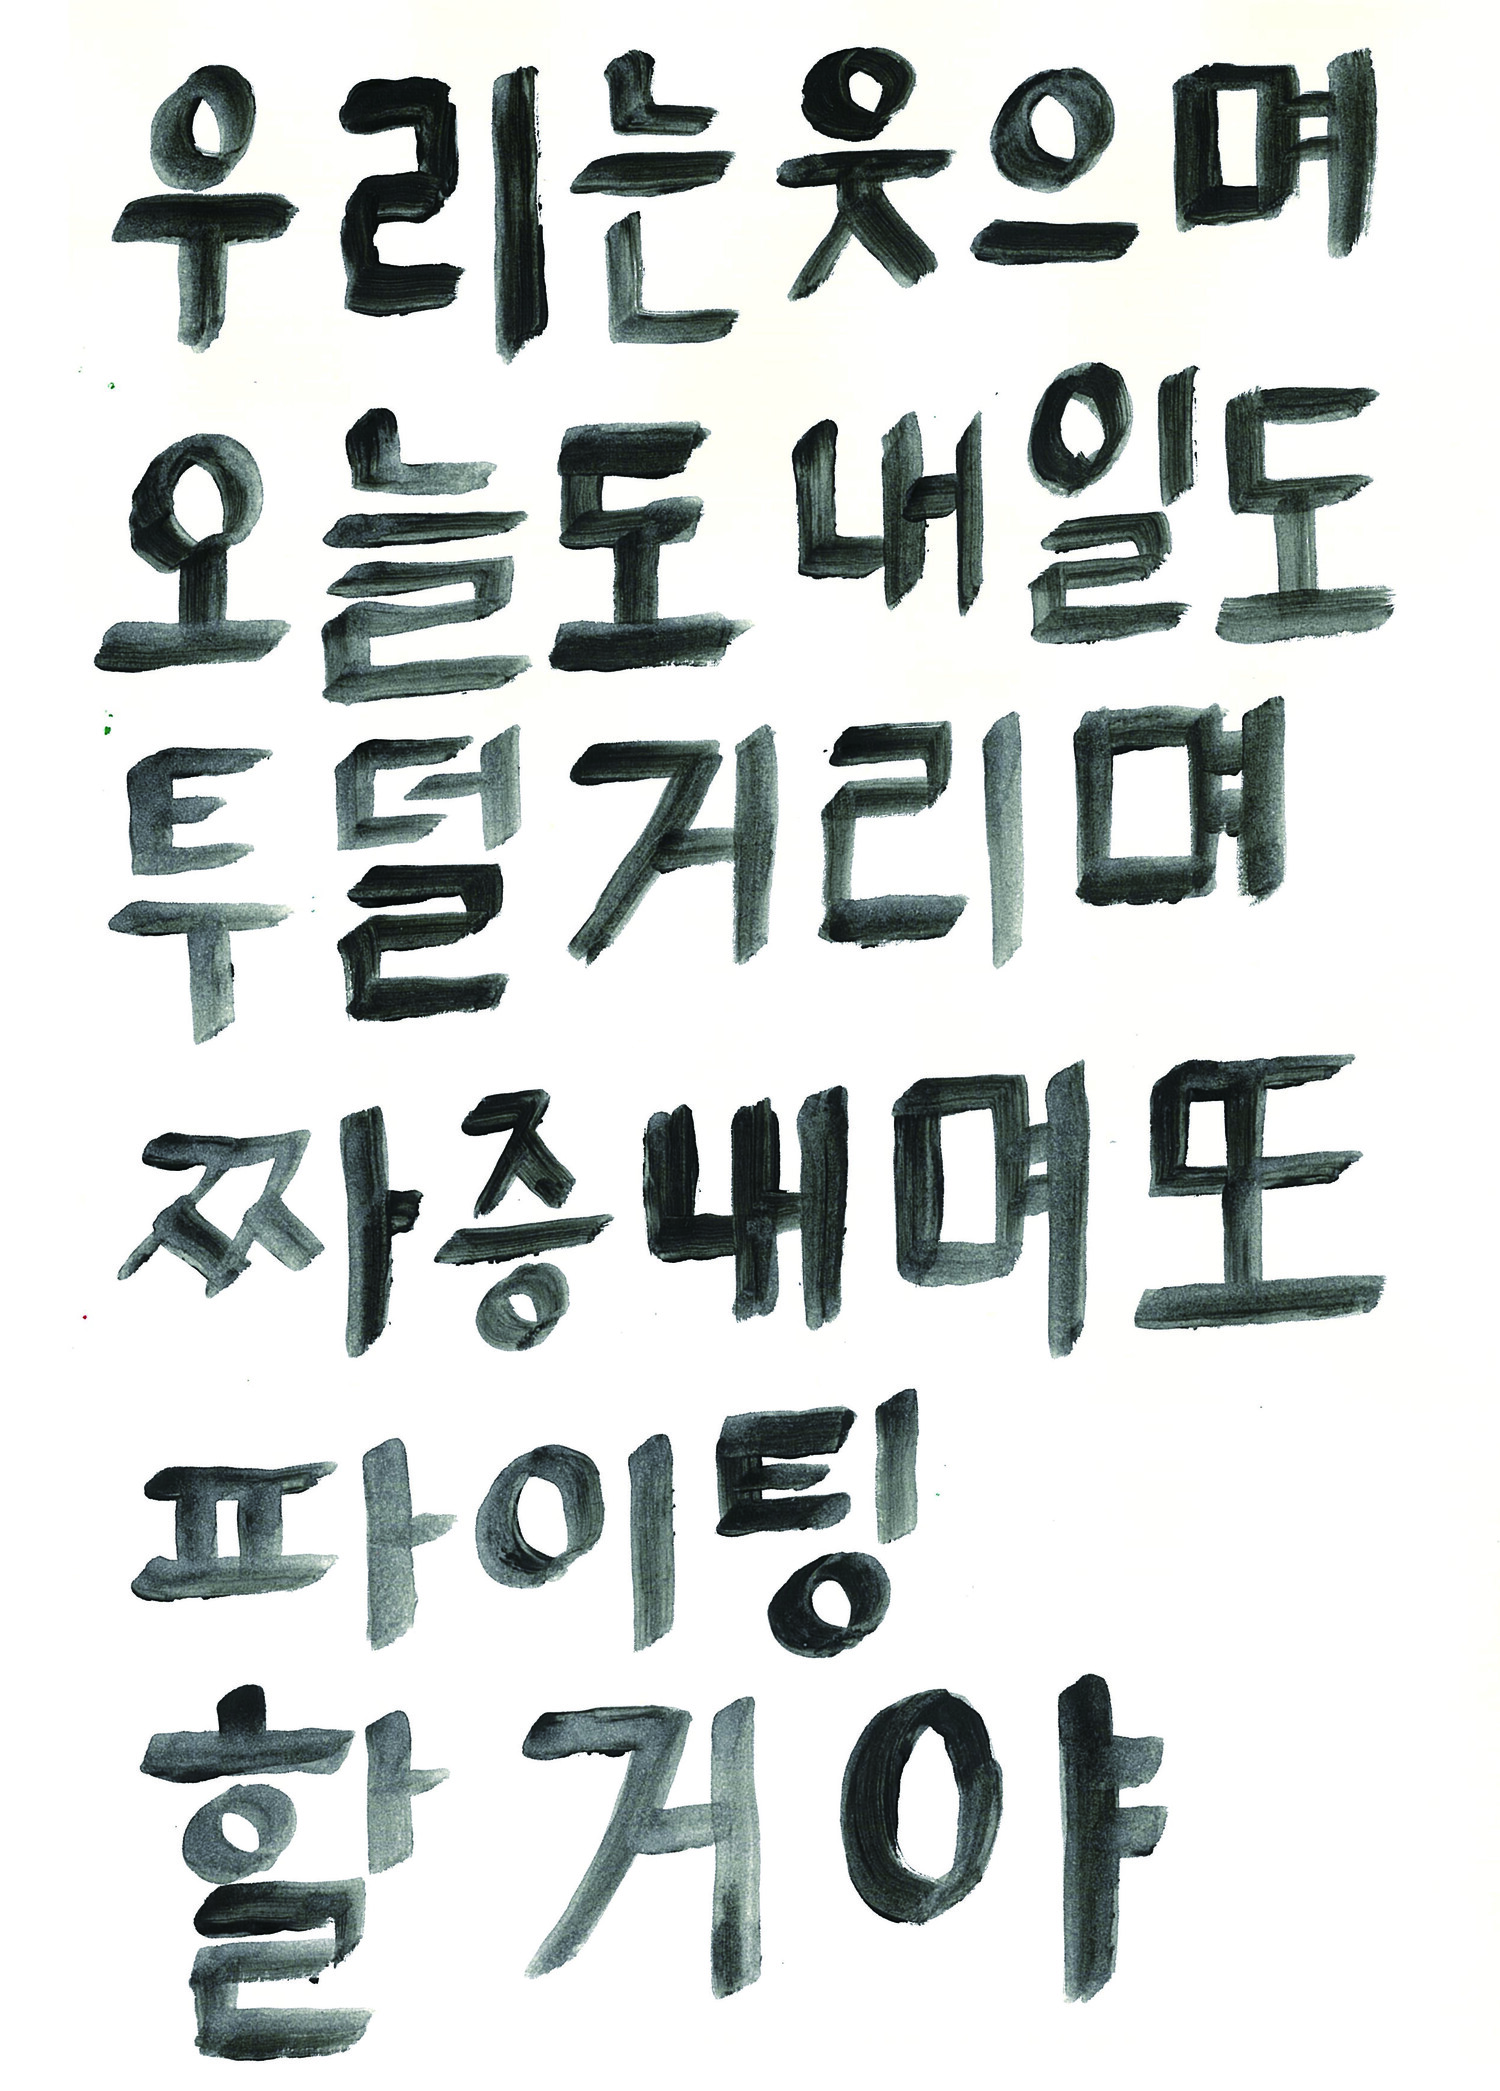 우리는 웃으며
오늘도 내일도
투덜거리며
짜증내며 또
파이팅
할거야